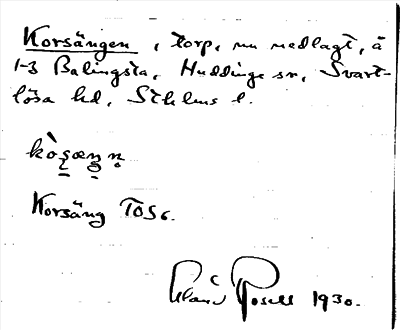 Korsängen, torp, nu nedlagt, å
1-3 Balingsta, Huddinge sn, Svart-
lösa hd, Sthlms l.
kòʂæŋn̥
Korsäng TOS6.
1930.